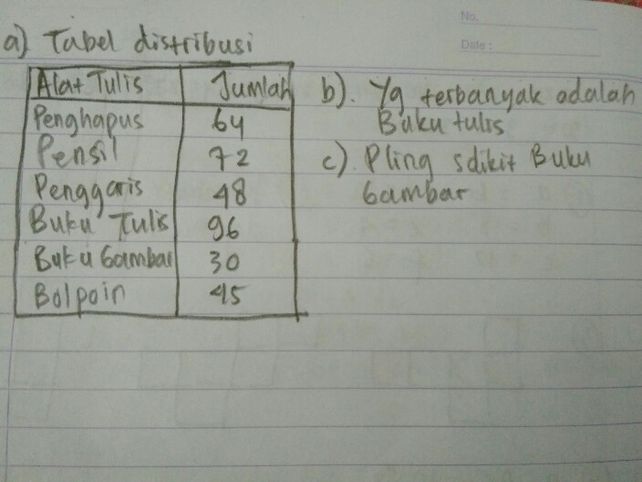 No.
Date :
a) Tabel distribusi
Alat Tulis Jumlah
Penghapus 64
Pensil 72
Penggaris 48
Buku Tulis 96
Buku Gambar 30
Bolpoin 45
b). Yg terbanyak adalah
Buku tulis
c). Pling sdikit Buku
Gambar